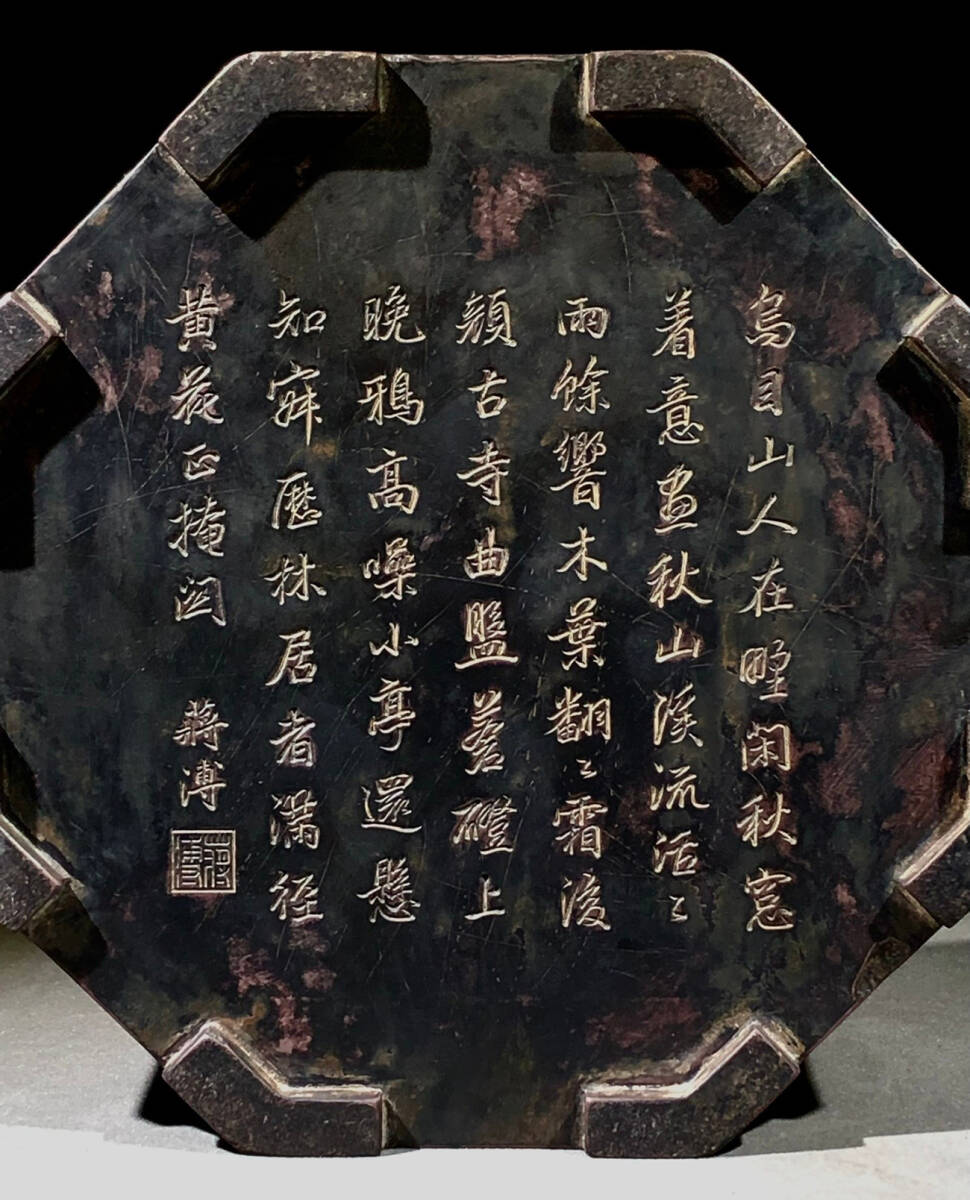 烏目山人在野閑秋窓
着意畫秋山溪流活〻
雨餘響木葉翻〻霜後
顔古寺曲盤蒼磴上
晚鴉高噪小亭還懸
知寂歷林居者滿徑
黃花正掩関
蔣溥
蔣溥